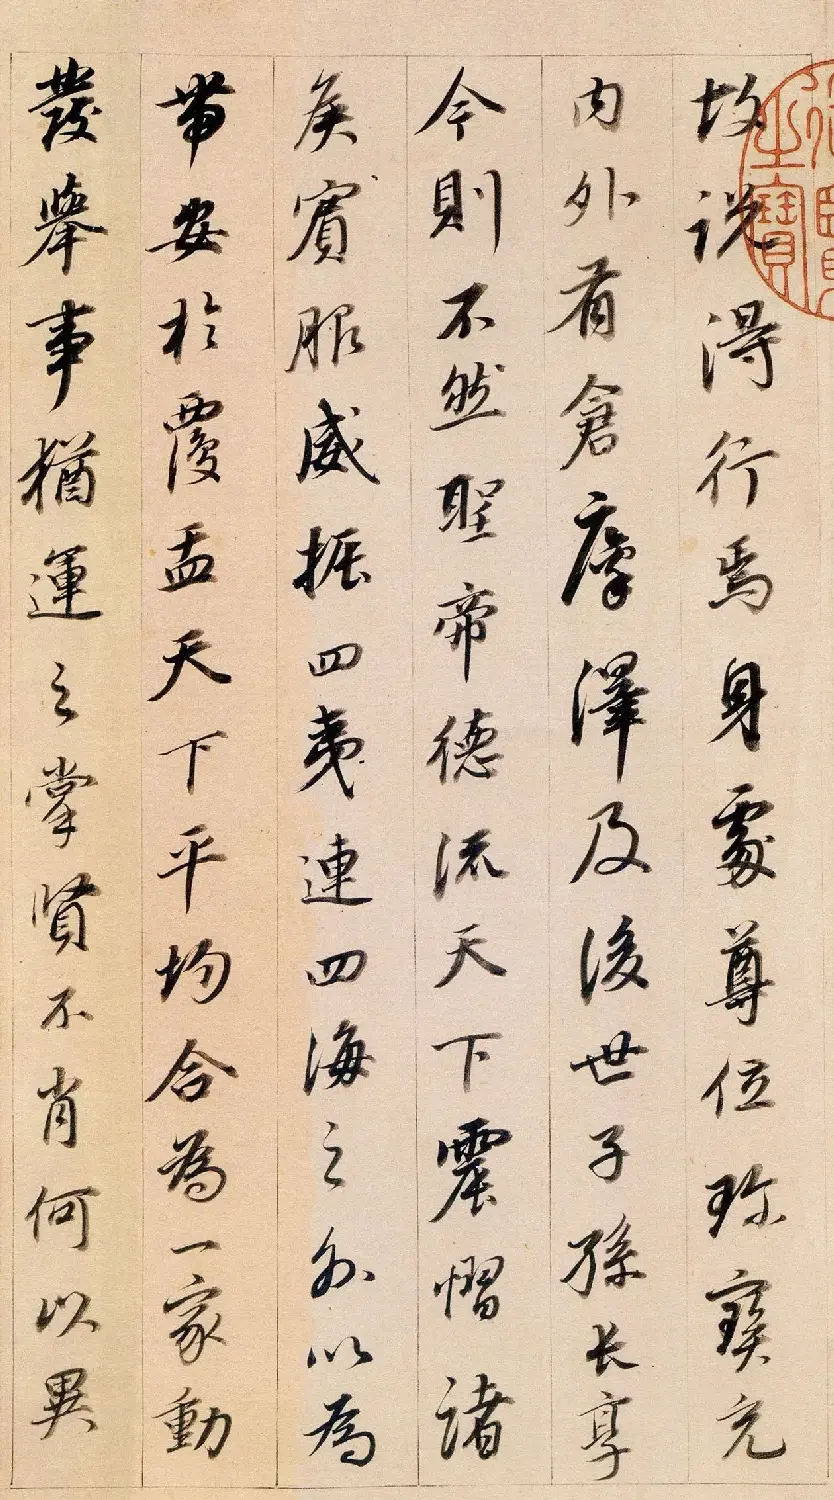 故說得行焉身處尊位珎寶充
内外有倉廩澤及後世子孫長享
今則不然聖帝德流天下震慴諸
侯賓服威振四夷連四海之外以為
帶安於覆盂天下平均合為一家動
發舉事猶運之掌賢不肖何以異
之寶